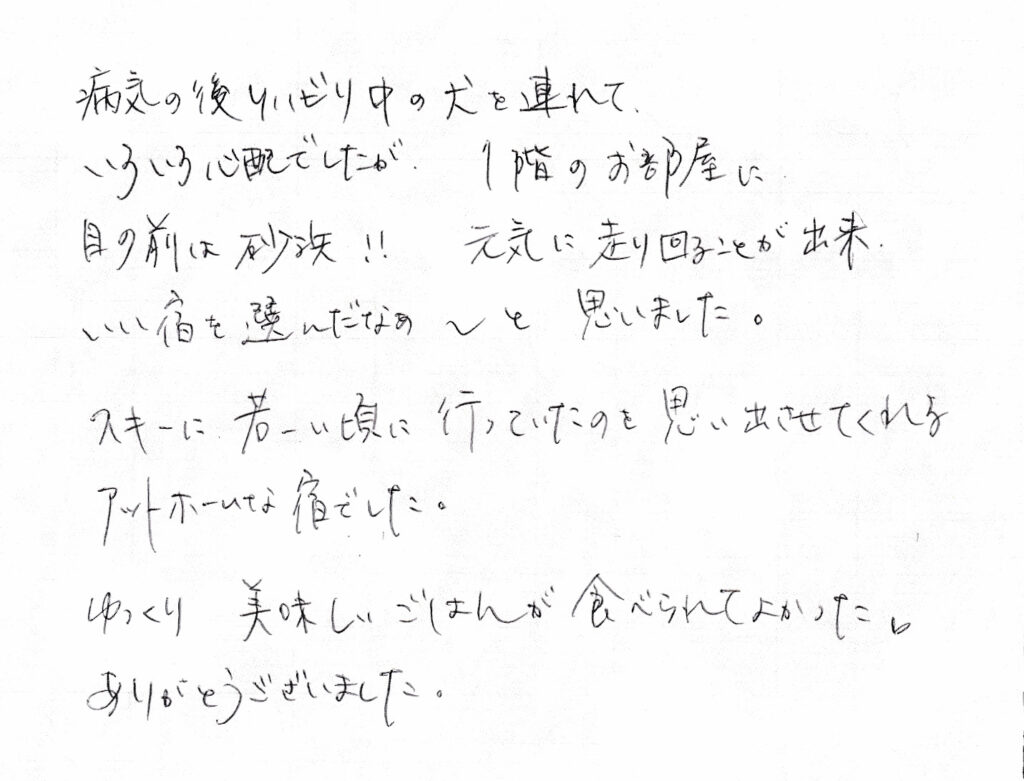 病気の後リハビリ中の犬を連れて、
いろいろ心配でしたが、 1階のお部屋に
目の前は砂浜!! 元気に走り回ることが出来、
いい宿を選んだなぁ〜と 思いました。
スキーに若ーい頃に行っていたのを思い出させてくれる
アットホームな宿でした。
ゆっくり 美味しいごはんが食べられてよかった。
ありがとうございました。